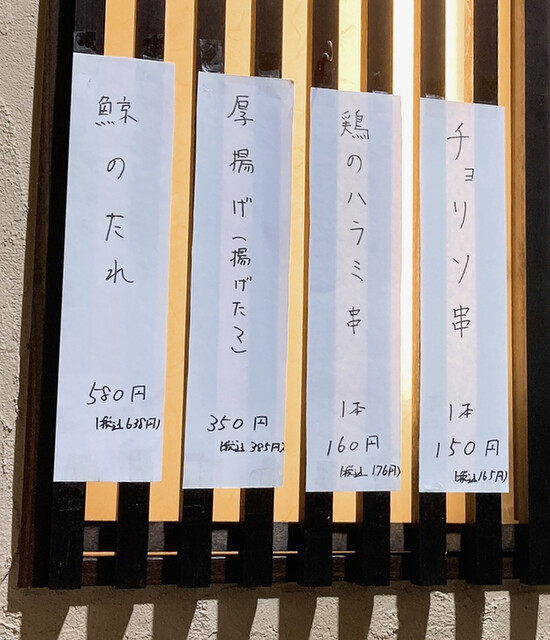 チョリソ串
1本
150円
(税込165円)
鶏のハラミ串
1本
160円
(税込176円)
厚揚げ(揚げたて)
350円
(税込385円)
鯨のたれ
580円
(税込638円)